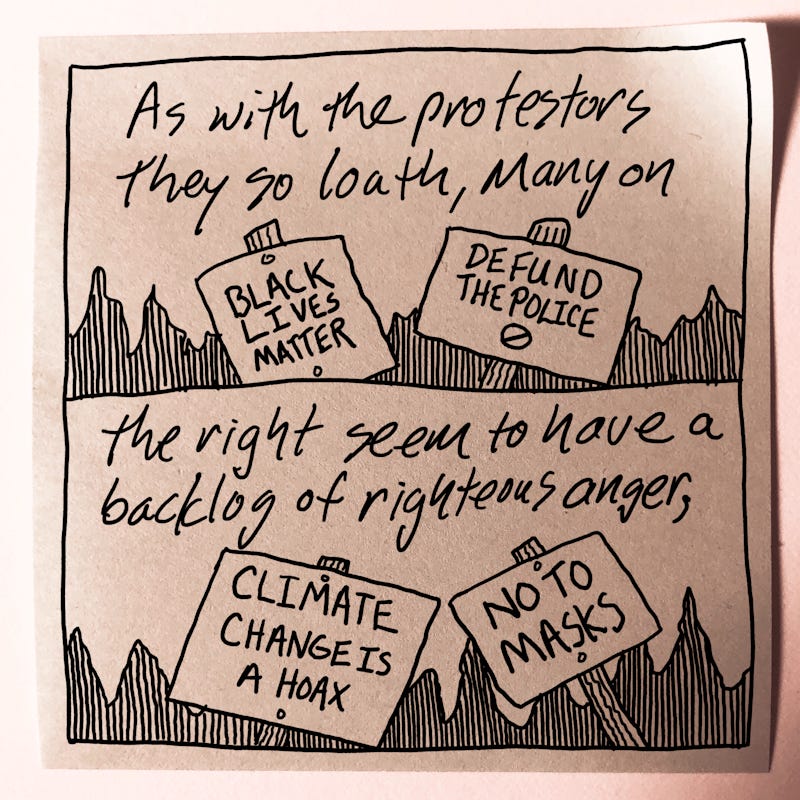 As with the protestors
they so loath, Many on
BLACK
LIVES
MATTER
DEFUND
THE POLICE
the right seem to have a
backlog of righteous anger,
CLIMATE
CHANGE IS
A HOAX
NO TO
MASKS